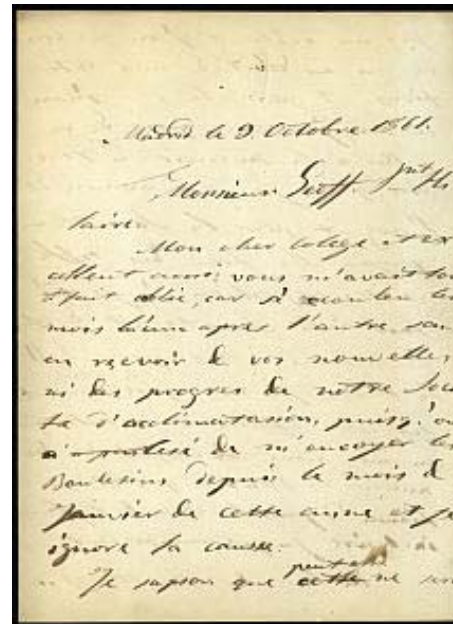 Madrid le 9 Octobre 1861.
Monsieur Geoff. St Hi
laire.
Mon cher colege et ex
allent ami; vous m'avait tou
t fait oblié, car si ecoulen le
mois l'une apres l'autre, san
en reçevoir de vos nouvelles,
ni des progres de notre Soci
te d'acclimatasión, puisq'o
de m'envoyer les
Boulesins depuis le mois d
Janvier de cette anne et je
ignore la cousse.
Je supson que peut etre cette ne